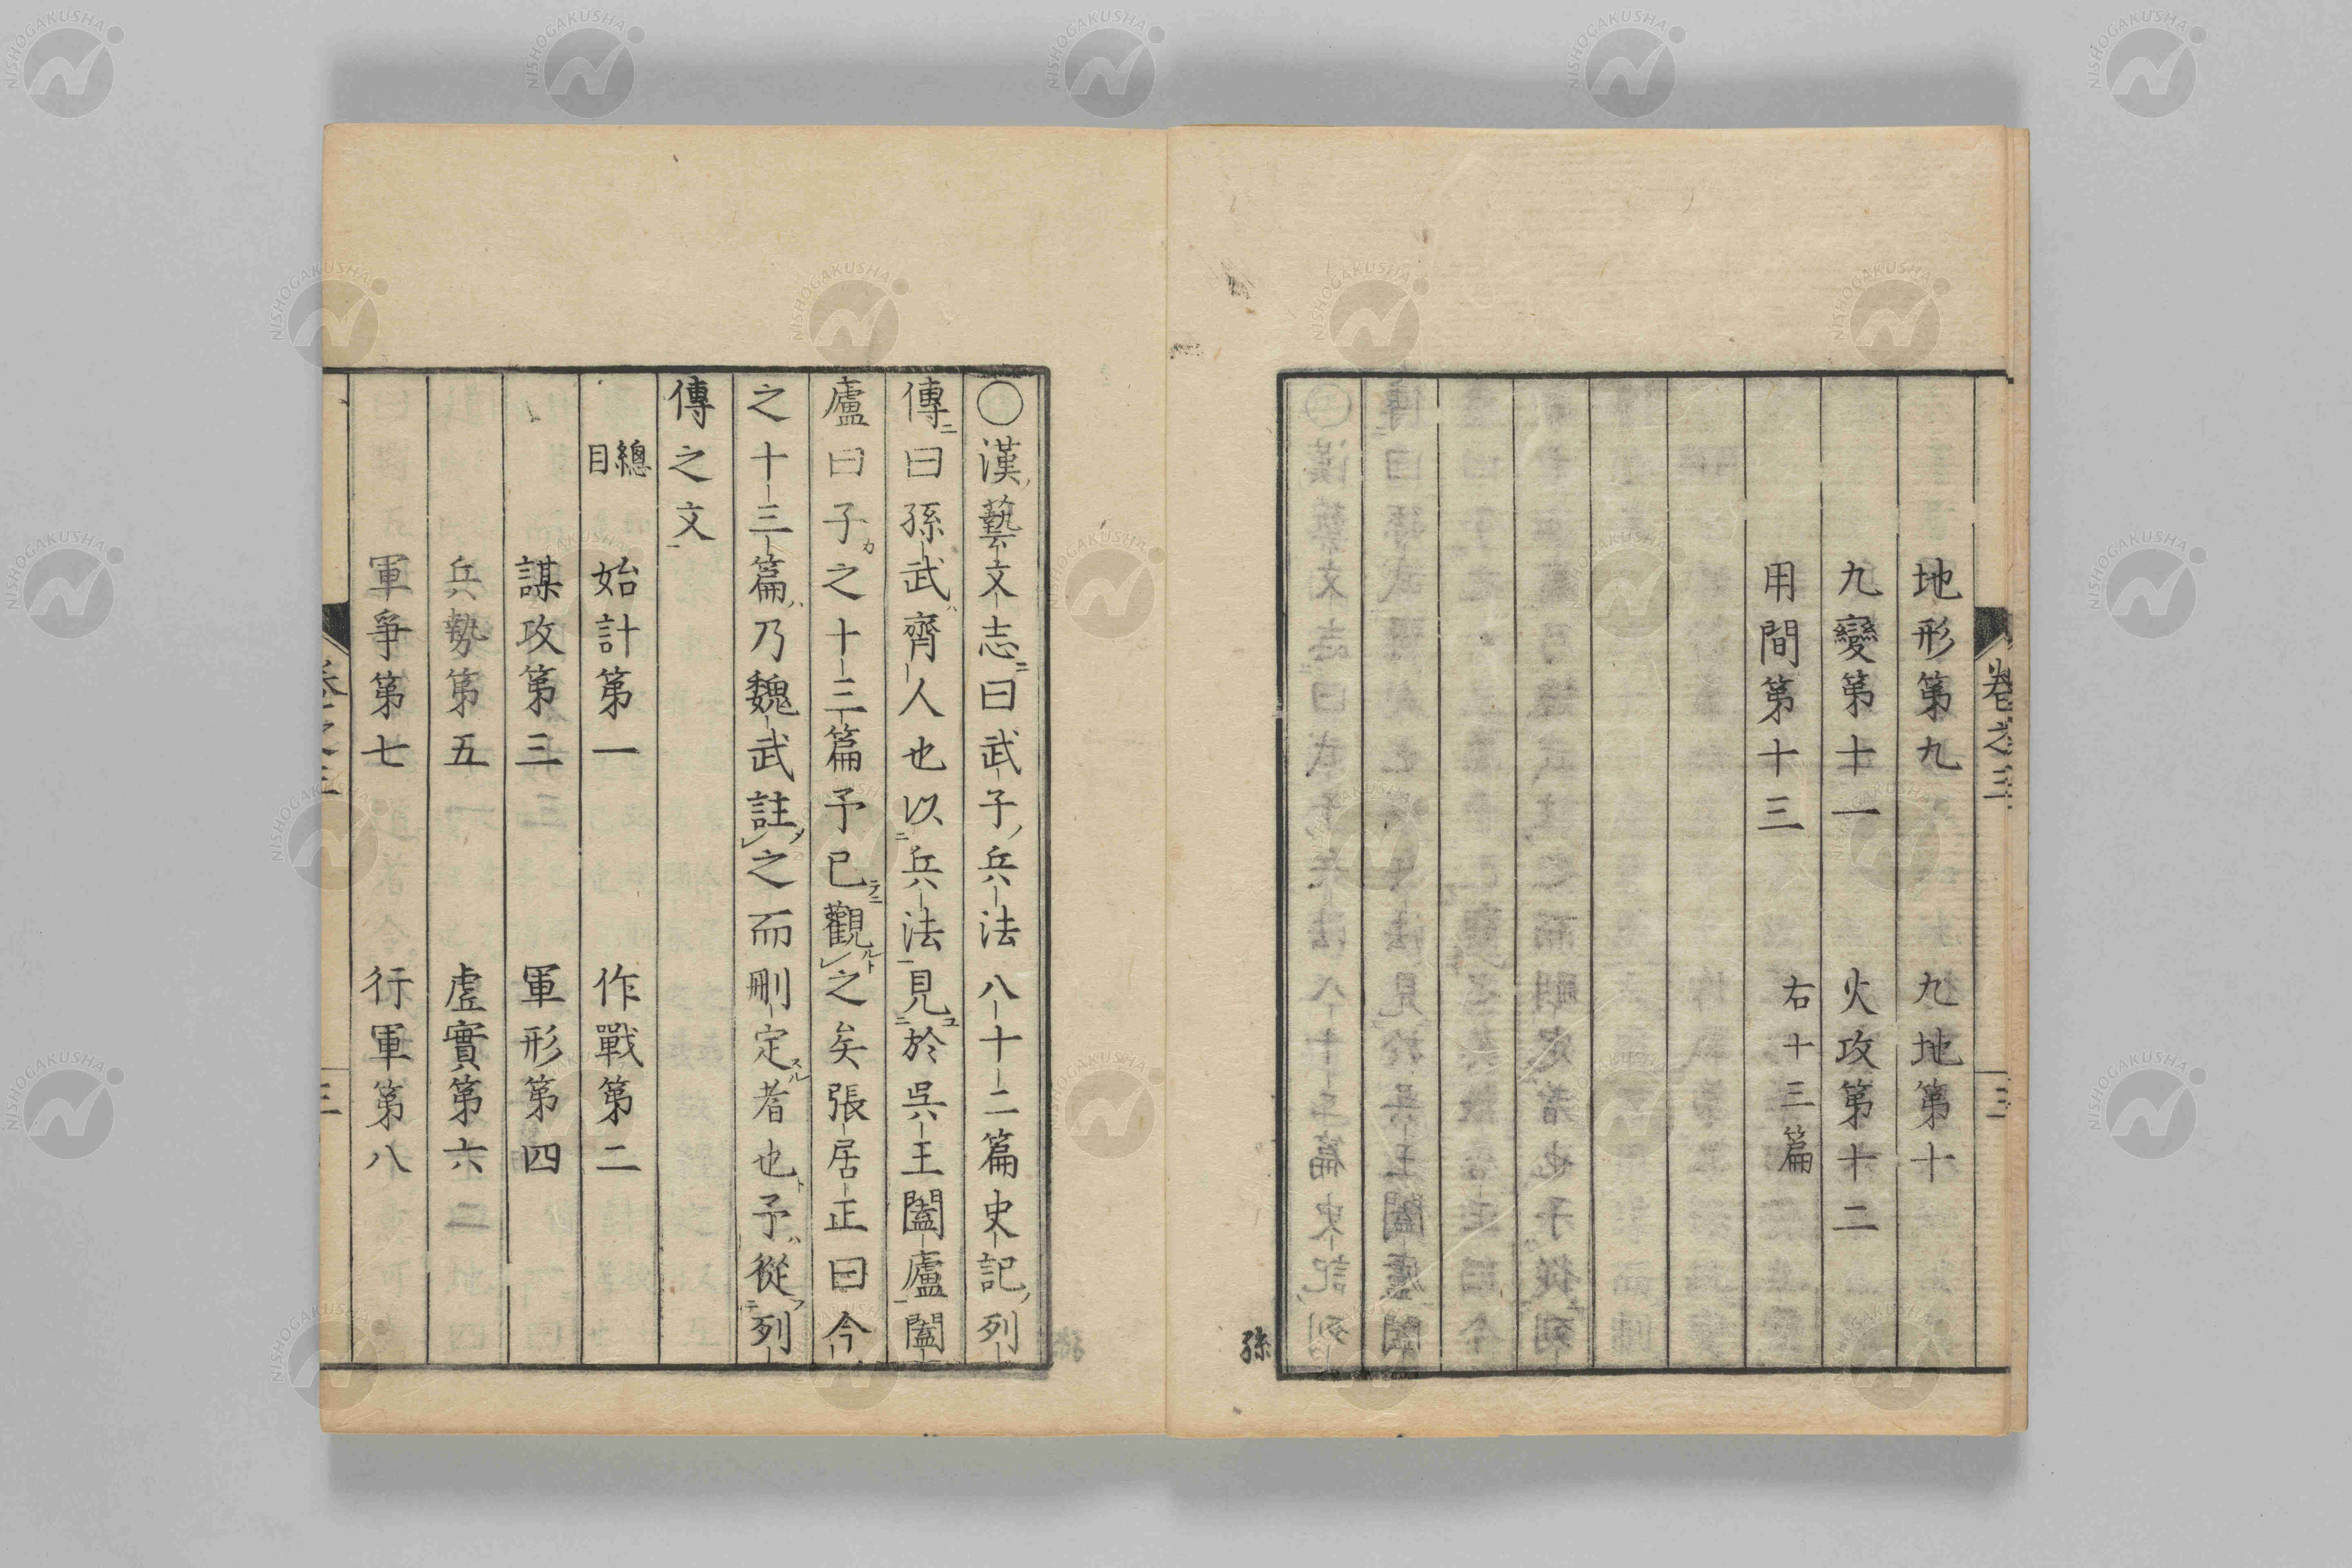 卷之三
三
地形第九 九地第十
九變第十一 火攻第十二
用間第十三 右十三篇
孫
〇漢藝文志曰武子兵法八十二篇史記列
傳曰孫武齊人也以兵法見於吳王闔廬闔
廬曰子之十三篇予已觀之矣張居正曰今
之十三篇乃魏武註之而刪定者也予從列
傳之文
總目 始計第一 作戰第二
謀攻第三 軍形第四
兵勢第五 虛實第六
軍爭第七 行軍第八